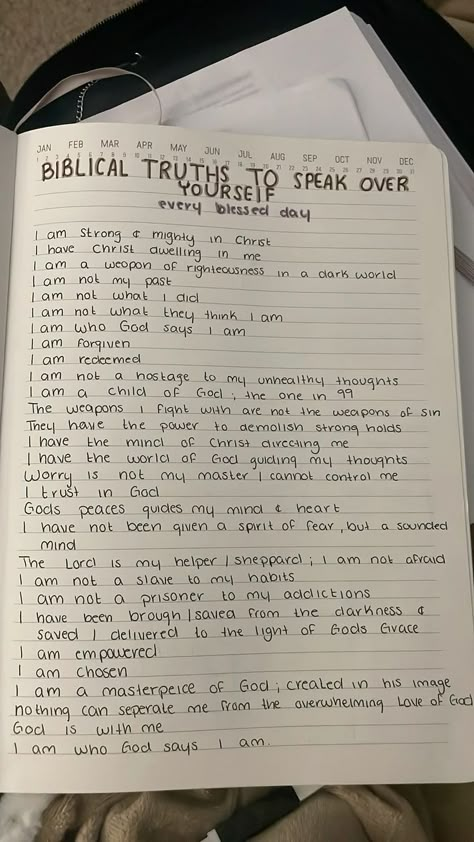 JAN FEB MAR APR MAY JUN JUL AUG SEP OCT NOV DEC
BIBLICAL TRUTHS TO SPEAK OVER
YOURSELF
every blessed day
I am strong & mighty in Christ
I have Christ dwelling in me
I am a weopon of righteousness in a dark world
I am not my past
I am not what I did
I am not what they think I am
I am who God says I am
I am forgiven
I am redeemed
I am not a hostage to my unhealthy thoughts
I am a child of God ; the one in 99
The weapons I fight with are not the weapons of sin
They have the power to demolish strong holds
I have the mind of Christ directing me
I have the world of God guiding my thoughts
Worry is not my master I cannot control me
I trust in God
Gods peaces guides my mind & heart
I have not been given a spirit of fear, but a sounded
mind
The Lord is my helper / sheppard ; I am not afraid
I am not a slave to my habits
I am not a prisoner to my addictions
I have been brough / saved from the darkness &
saved / delivered to the light of Gods Grace
I am empowered
I am chosen
I am a masterpeice of God ; created in his image
nothing can seperate me from the overwhelming Love of God
God is with me
I am who God says I am.